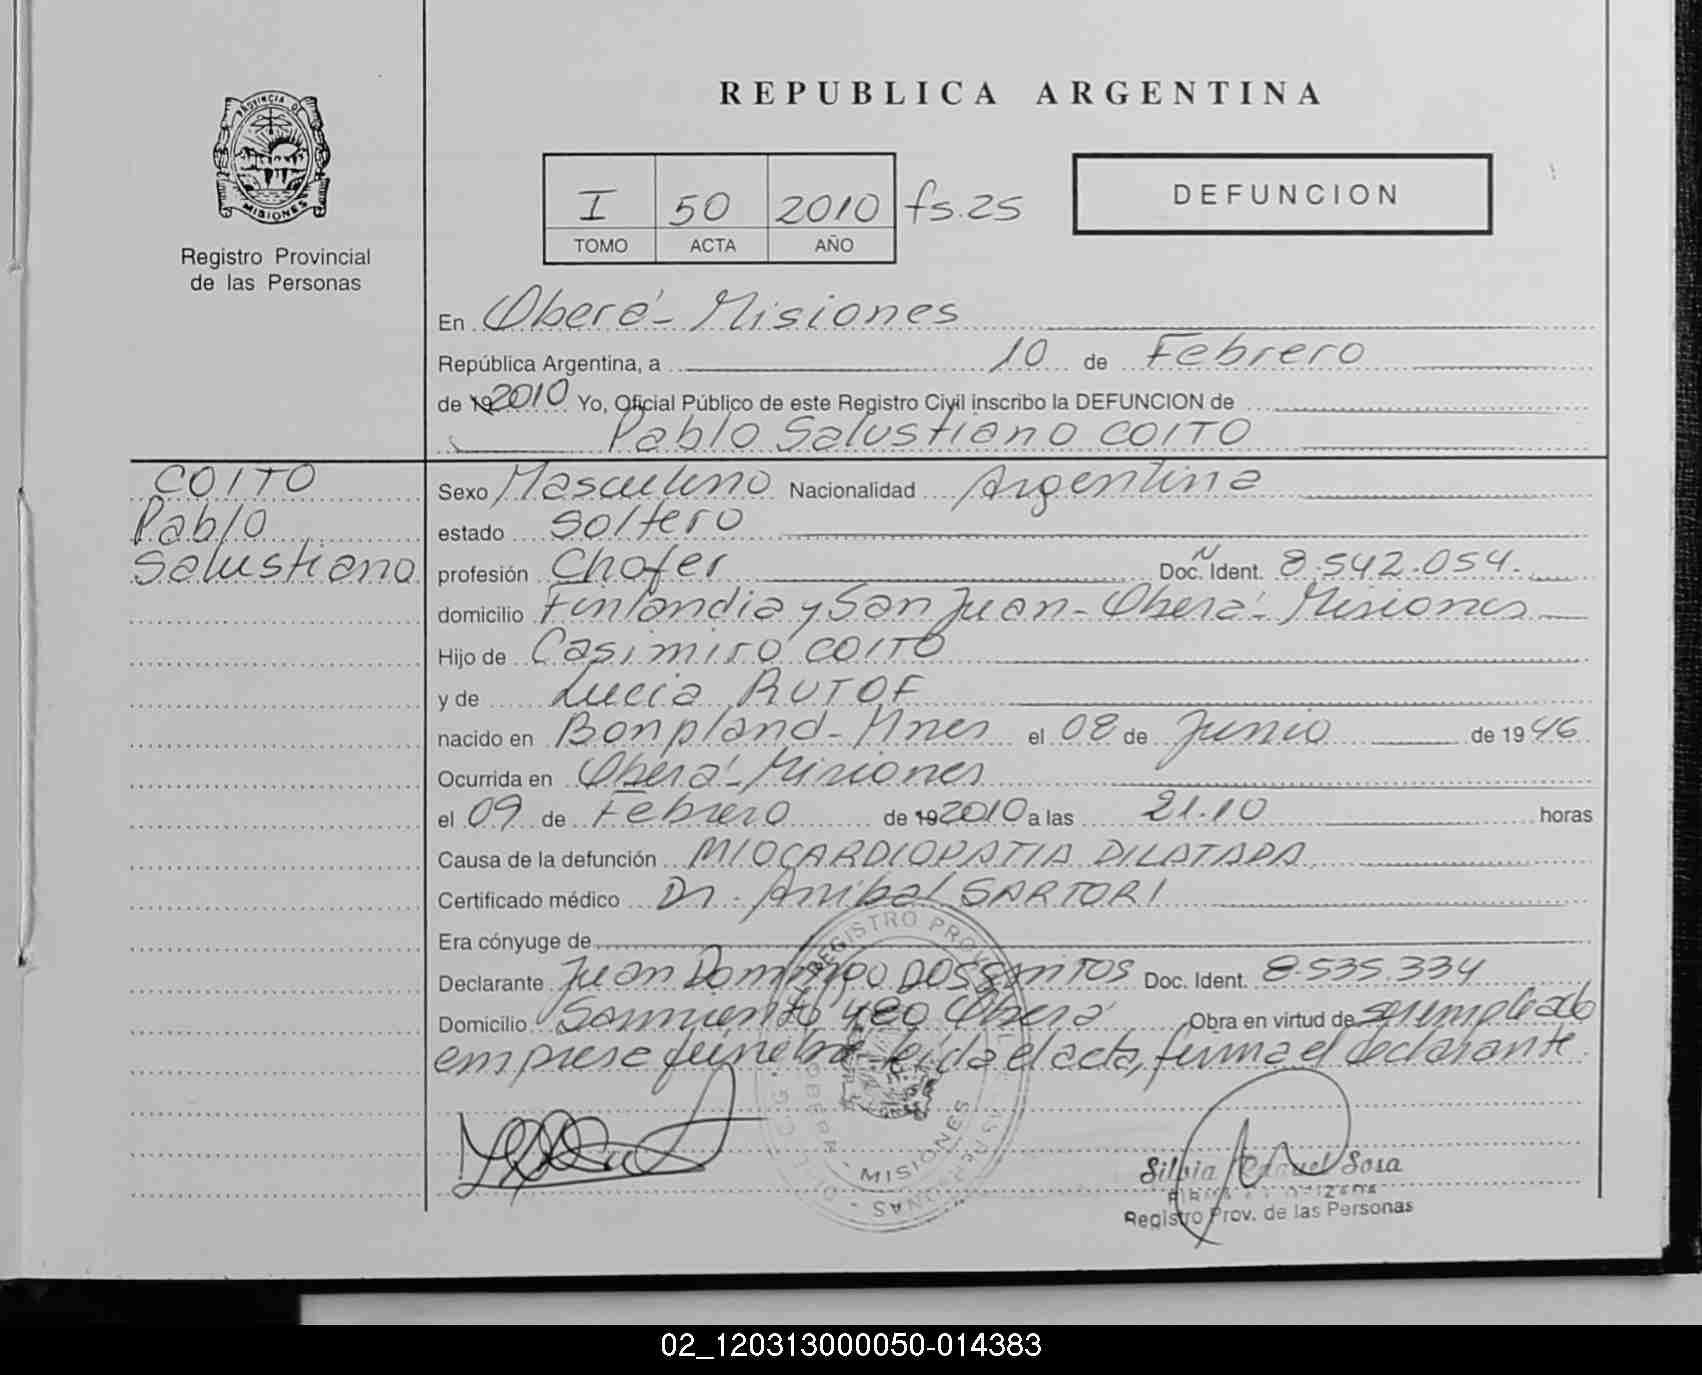 REPUBLICA ARGENTINA
PROVINCIA DE
MISIONES
Registro Provincial
de las Personas
I 50 2010 fs.25
TOMO ACTA AÑO
DEFUNCION
En Oberá - Misiones
República Argentina, a 10 de Febrero
de 19 2010 Yo, Oficial Público de este Registro Civil inscribo la DEFUNCION de
Pablo Salustiano COITO
COITO
Pablo
Salustiano
Sexo Masculino Nacionalidad Argentina
estado Soltero
profesión Chofer Doc. Ident. 8.542.054.
domicilio Finlandia y San Juan - Oberá - Misiones
Hijo de Casimiro COITO
y de Lucia RUTOF
nacido en Bonpland - Mnes el 08 de Junio de 1946
Ocurrida en Oberá - Misiones
el 09 de Febrero de 19 2010 a las 21.10 horas
Causa de la defunción MIOCARDIOPATIA DILATADA
Certificado médico Dr. Anibal SARTORI
Era cónyuge de
Declarante Juan Domingo DOSSANTOS Doc. Ident. 8.535.334
Domicilio Sarmiento 480 Oberá Obra en virtud de ser empleado
empresa funebre - leida el acta, firma el declarante
REGISTRO PROV
OBERA - MISIONES
Silvia Raquel Sosa
Registro Prov. de las Personas
02_120313000050-014383